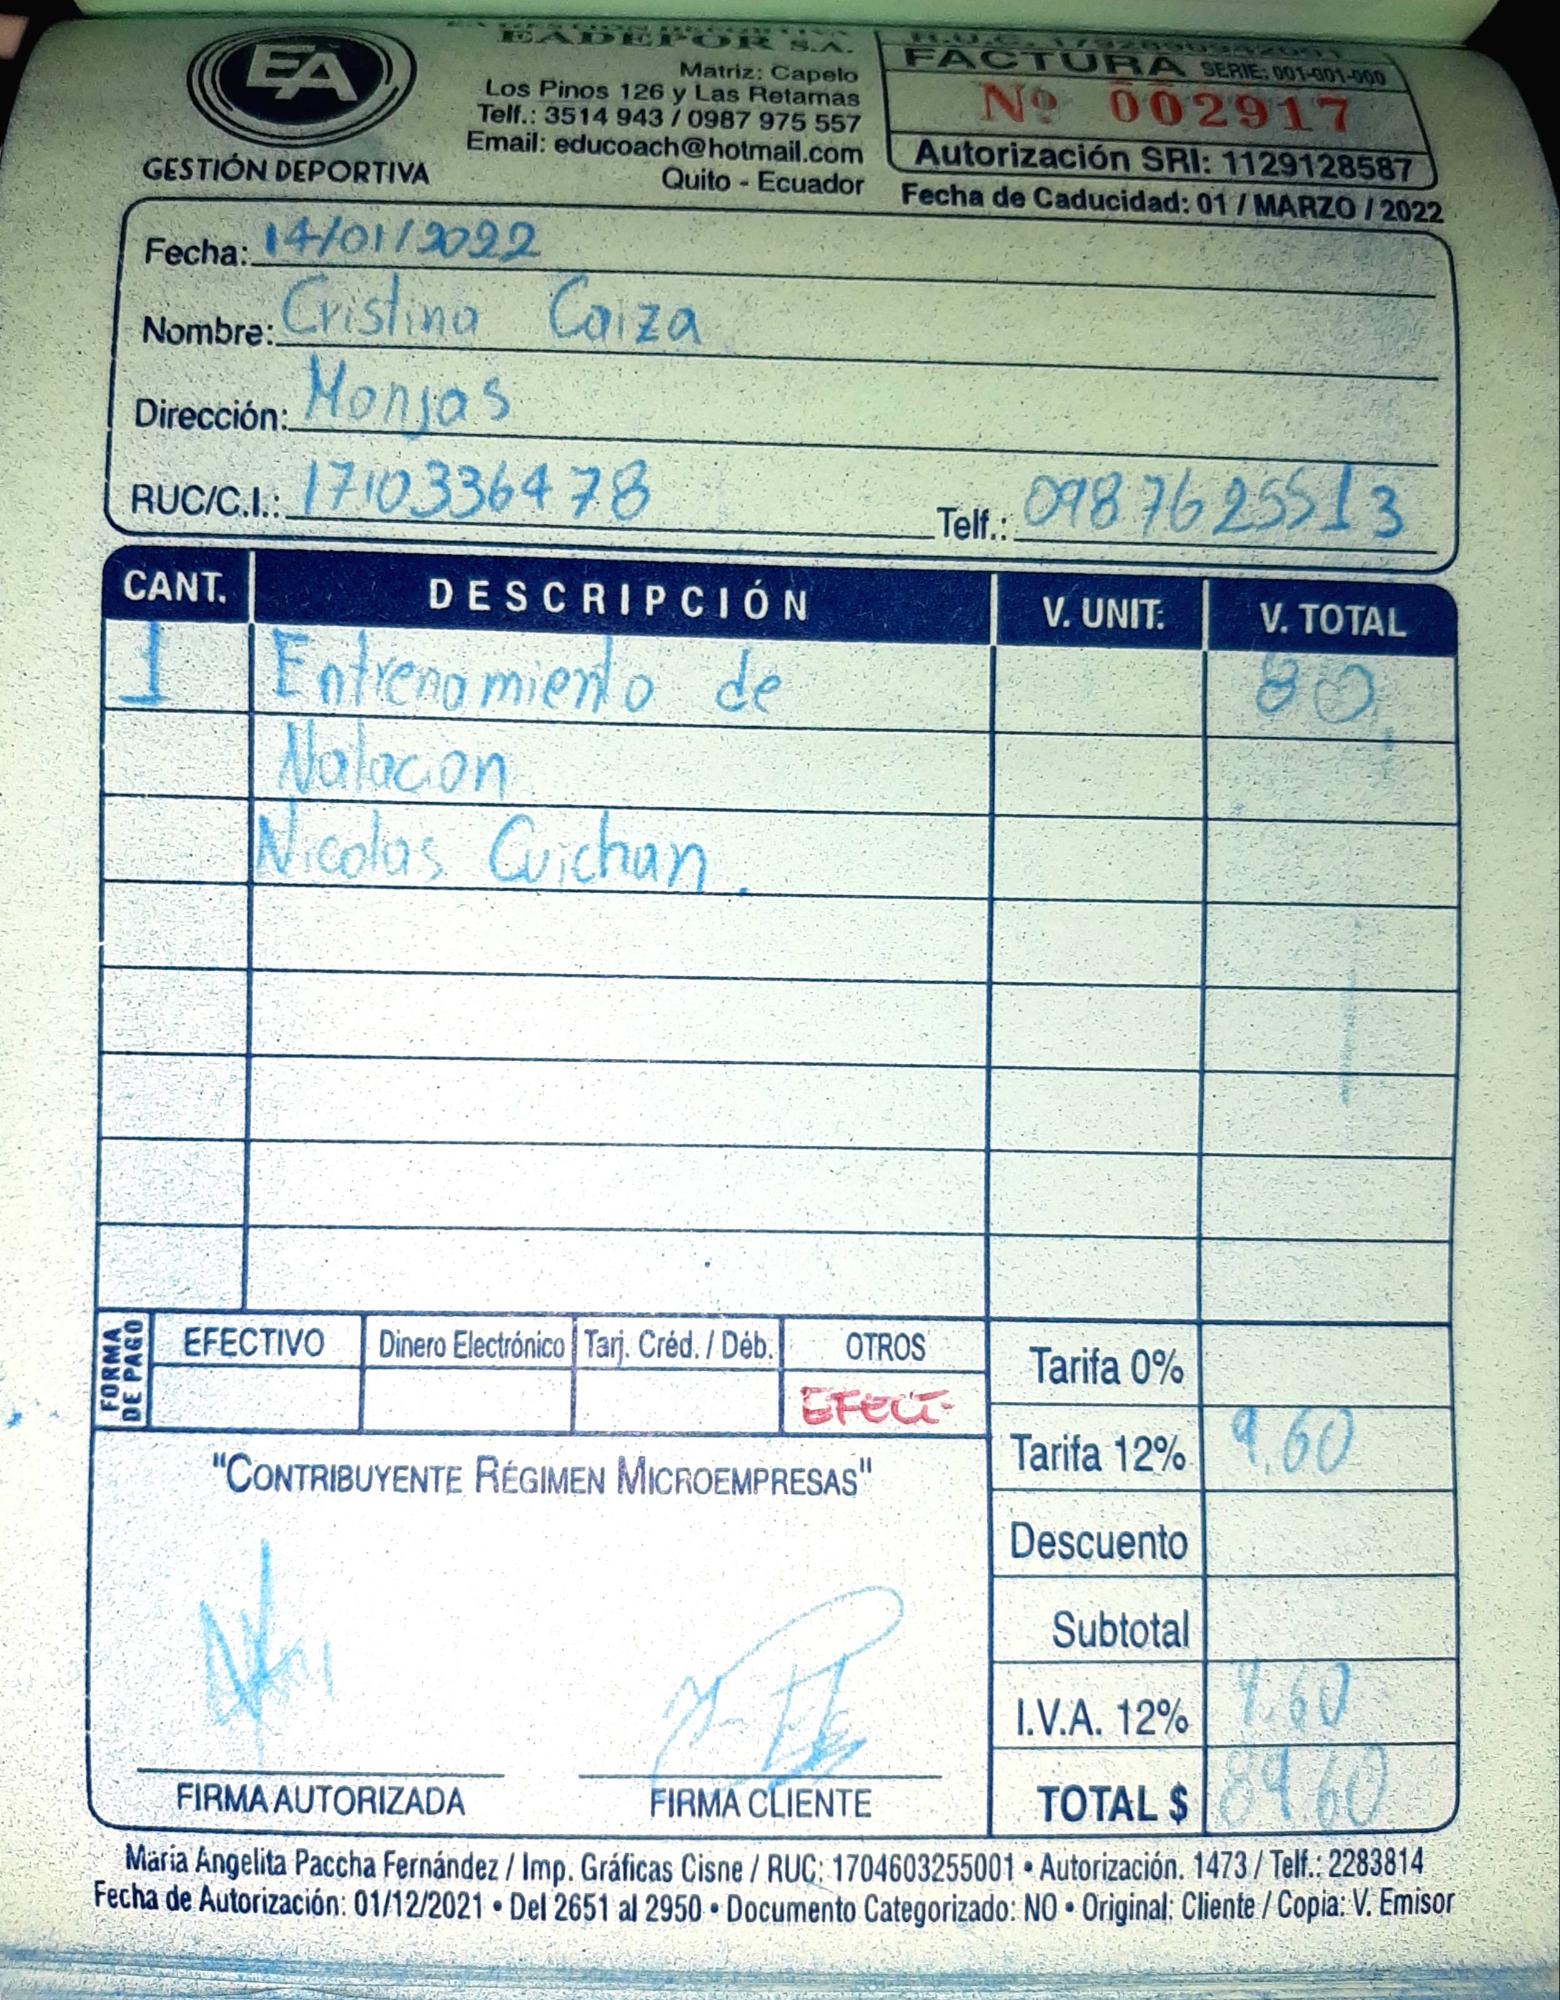 EA
GESTIÓN DEPORTIVA
EADEPOR S.A.
Matriz: Capelo
Los Pinos 126 y Las Retamas
Telf.: 3514 943 / 0987 975 557
Email: educoach@hotmail.com
Quito - Ecuador
FACTURA SERIE: 001-001-000
Nº 002917
Autorización SRI: 1129128587
Fecha de Caducidad: 01 / MARZO / 2022
Fecha: 14/01/2022
Nombre: Cristina Caiza
Dirección: Monjas
RUC/C.I.: 1710336478 Telf.: 0987625513
CANT. DESCRIPCIÓN V. UNIT. V. TOTAL
1 Entrenamiento de 80
Natacon
Nicolas Cuichan.
FORMA DE PAGO
EFECTIVO Dinero Electrónico Tarj. Créd. / Déb. OTROS
EFECT.
Tarifa 0%
Tarifa 12% 9.60
Descuento
Subtotal
I.V.A. 12% 9.60
TOTAL $ 89.60
"CONTRIBUYENTE RÉGIMEN MICROEMPRESAS"
FIRMA AUTORIZADA FIRMA CLIENTE
María Angelita Paccha Fernández / Imp. Gráficas Cisne / RUC: 1704603255001 • Autorización. 1473 / Telf.: 2283814
Fecha de Autorización: 01/12/2021 • Del 2651 al 2950 • Documento Categorizado: NO • Original: Cliente / Copia: V. Emisor